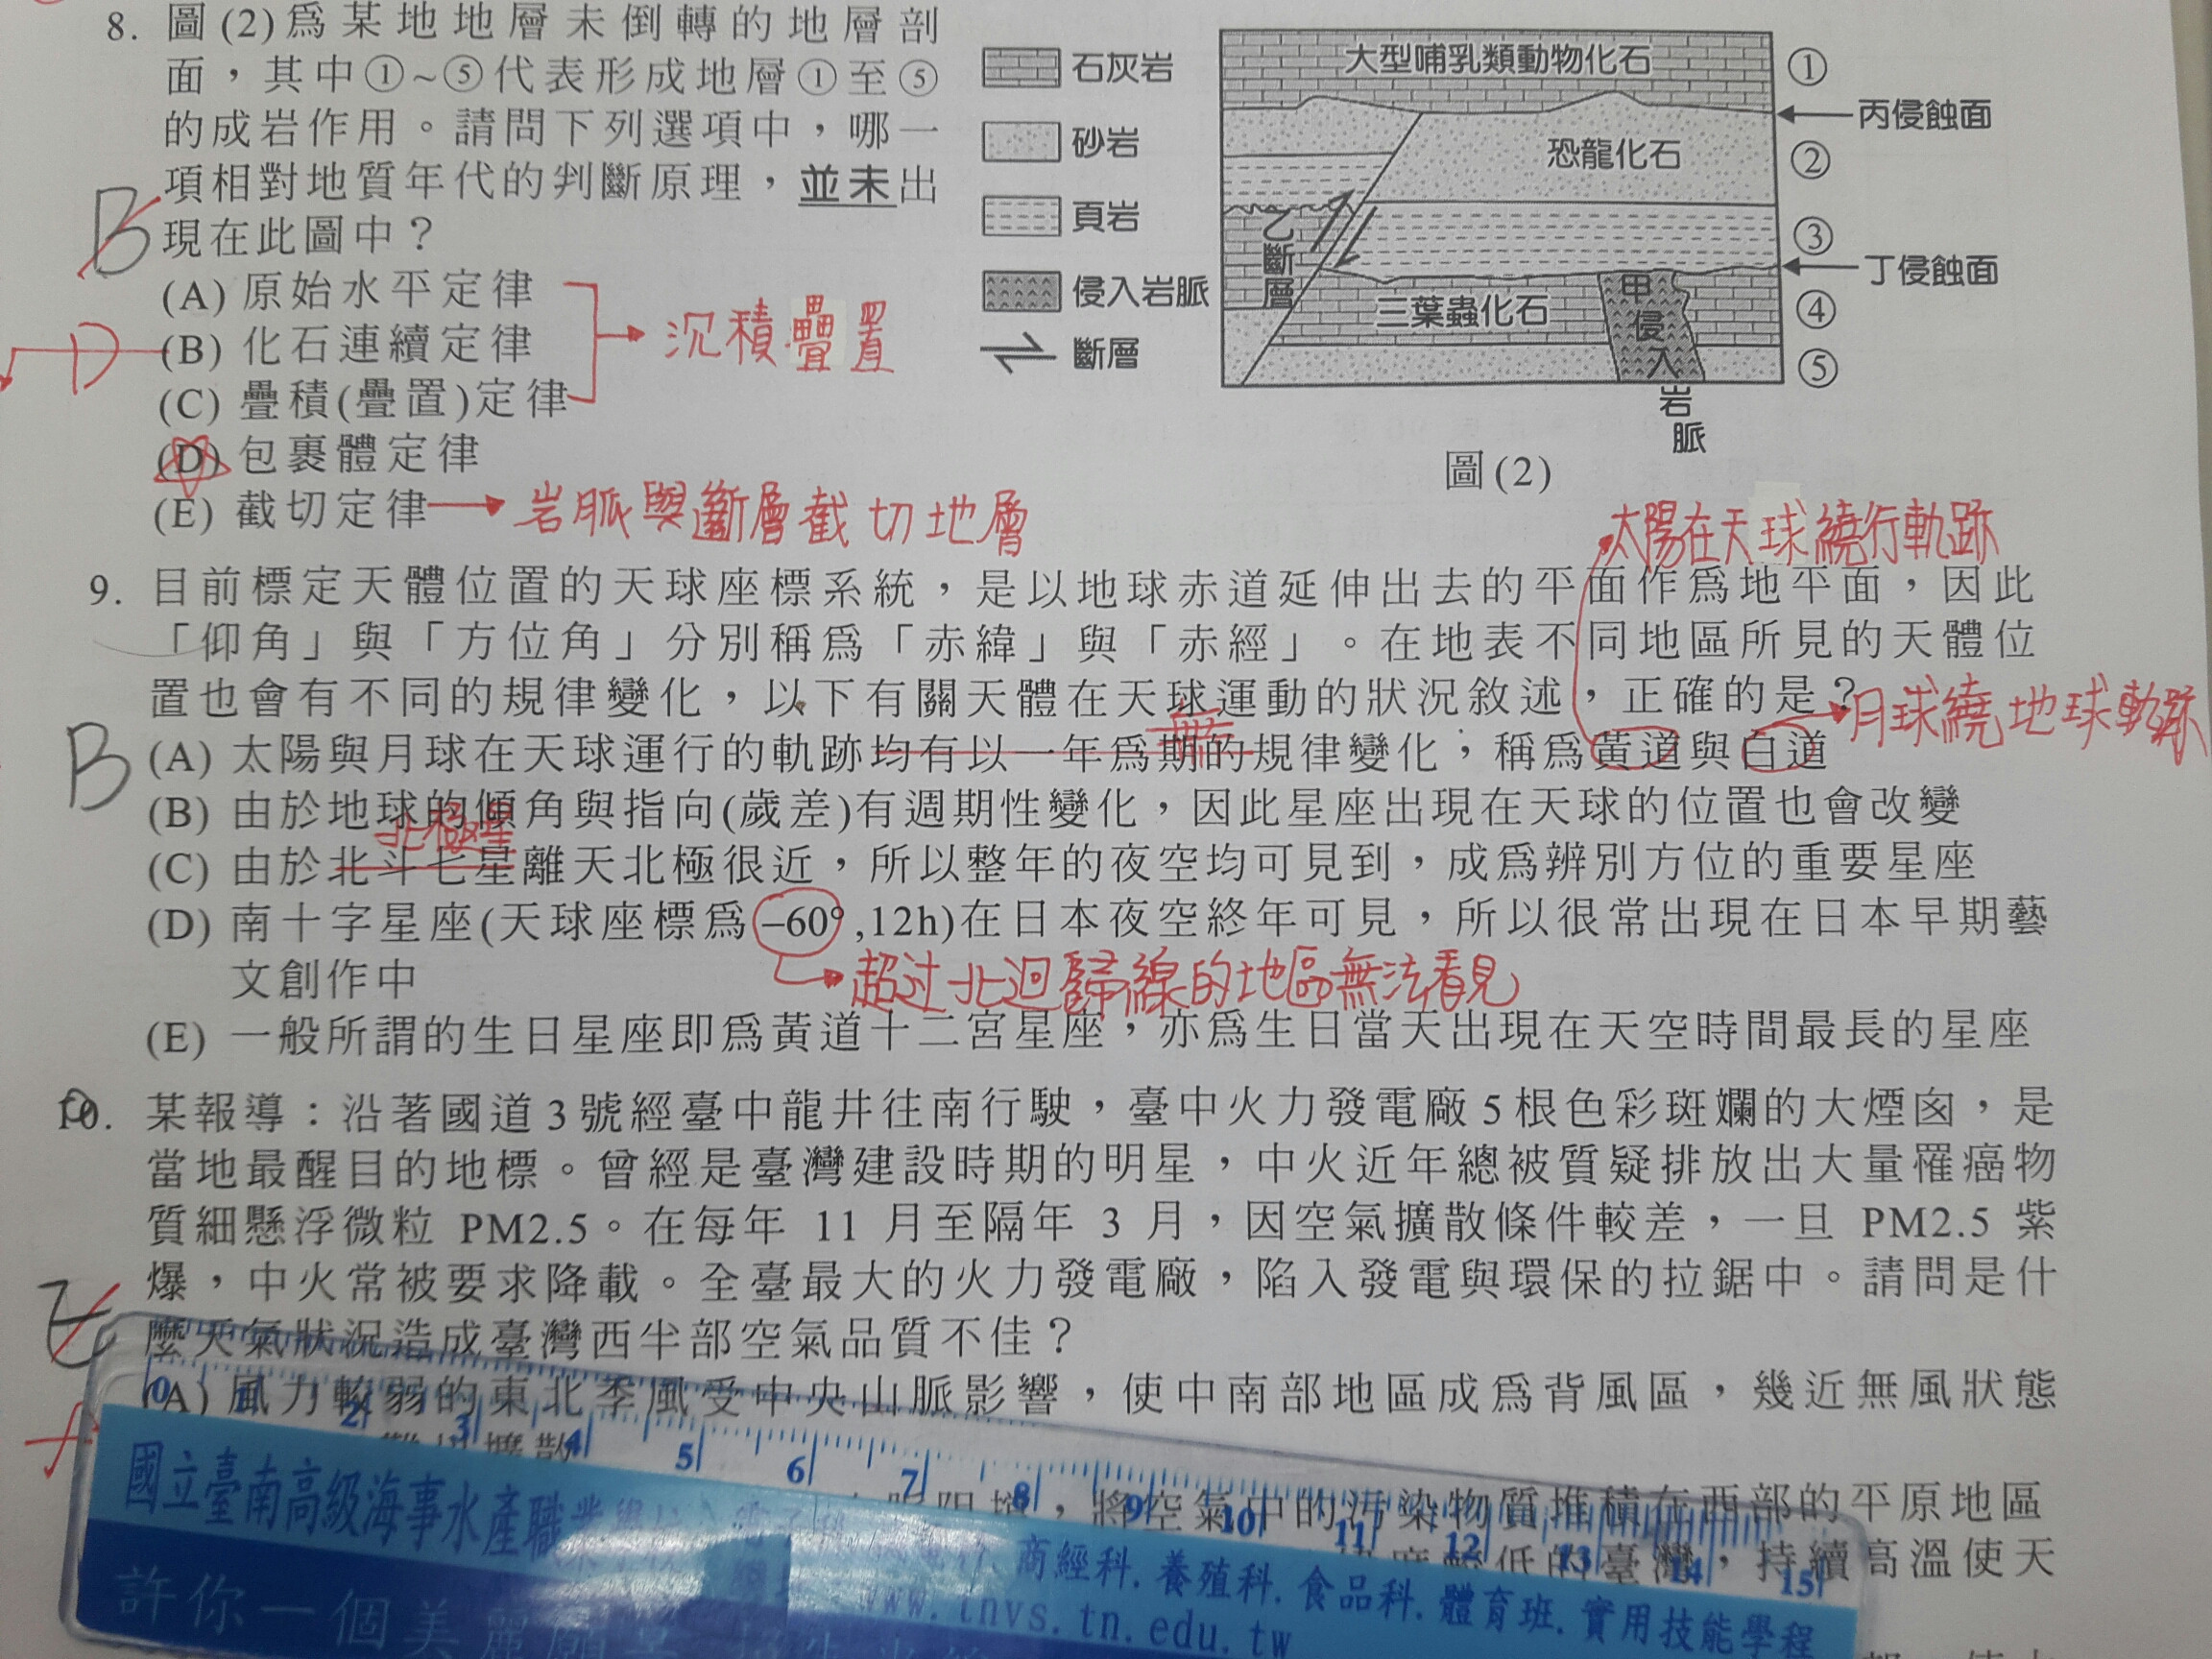 8. 圖(2)為某地地層未倒轉的地層剖
面，其中①~⑤代表形成地層①至⑤
的成岩作用。請問下列選項中，哪一
項相對地質年代的判斷原理，並未出
現在此圖中？
B
(A) 原始水平定律
(B) 化石連續定律
(C) 疊積(疊置)定律
(D) 包裹體定律
(E) 截切定律
D
沉積疊置
岩脈與斷層截切地層
石灰岩
砂岩
頁岩
侵入岩脈
斷層
大型哺乳類動物化石
①
丙侵蝕面
恐龍化石
②
乙斷層
③
丁侵蝕面
三葉蟲化石
甲侵入岩脈
④
⑤
圖(2)
太陽在天球繞行軌跡
9. 目前標定天體位置的天球座標系統，是以地球赤道延伸出去的平面作為地平面，因此
「仰角」與「方位角」分別稱為「赤緯」與「赤經」。在地表不同地區所見的天體位
置也會有不同的規律變化，以下有關天體在天球運動的狀況敘述，正確的是？
月球繞地球軌跡
無
B
(A) 太陽與月球在天球運行的軌跡均有以一年為期的規律變化，稱為黃道與白道
(B) 由於地球的傾角與指向(歲差)有週期性變化，因此星座出現在天球的位置也會改變
北極星
(C) 由於北斗七星離天北極很近，所以整年的夜空均可見到，成為辨別方位的重要星座
(D) 南十字星座(天球座標為–60°,12h)在日本夜空終年可見，所以很常出現在日本早期藝
文創作中
超过北迴歸線的地區無法看見
(E) 一般所謂的生日星座即為黃道十二宮星座，亦為生日當天出現在天空時間最長的星座
10. 某報導：沿著國道3號經臺中龍井往南行駛，臺中火力發電廠5根色彩斑斕的大煙囪，是
當地最醒目的地標。曾經是臺灣建設時期的明星，中火近年總被質疑排放出大量罹癌物
質細懸浮微粒 PM2.5。在每年 11 月至隔年 3 月，因空氣擴散條件較差，一旦 PM2.5 紫
爆，中火常被要求降載。全臺最大的火力發電廠，陷入發電與環保的拉鋸中。請問是什
麼天氣狀況造成臺灣西半部空氣品質不佳？
(A) 風力較弱的東北季風受中央山脈影響，使中南部地區成為背風區，幾近無風狀態
擴散
，將空氣中的污染物質堆積在西部的平原地區
較低的臺灣，持續高溫使天
0 1 2 3 4 5 6 7 8 9 10 11 12 13 14 15
國立臺南高級海事水產職業學校
商經科.養殖科.食品科.體育班.實用技能學程
www.tnvs.tn.edu.tw
許你一個美麗